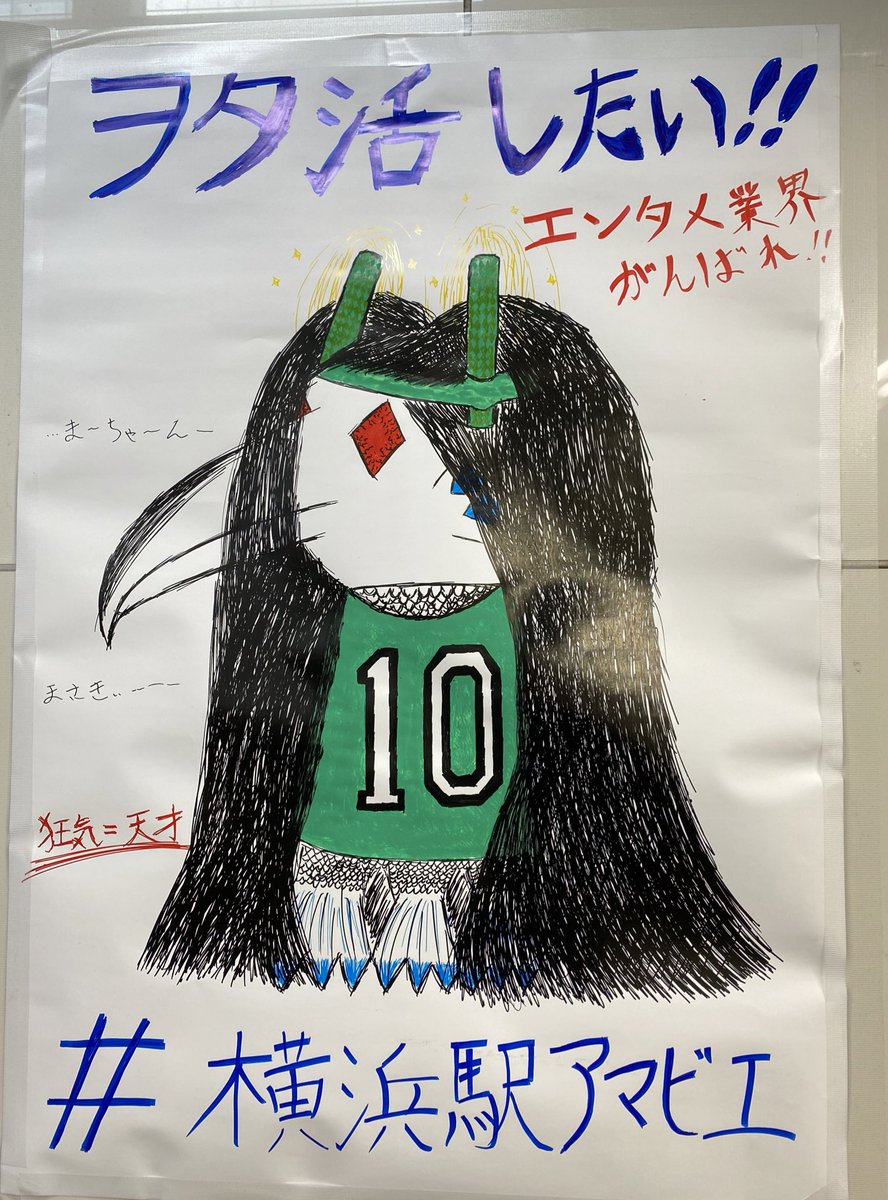 ヲタ活したい!!
エンタメ業界
がんばれ!!
…まーちゃーんー
10
まさきぃーーー
狂気=天才
#横浜駅アマビエ